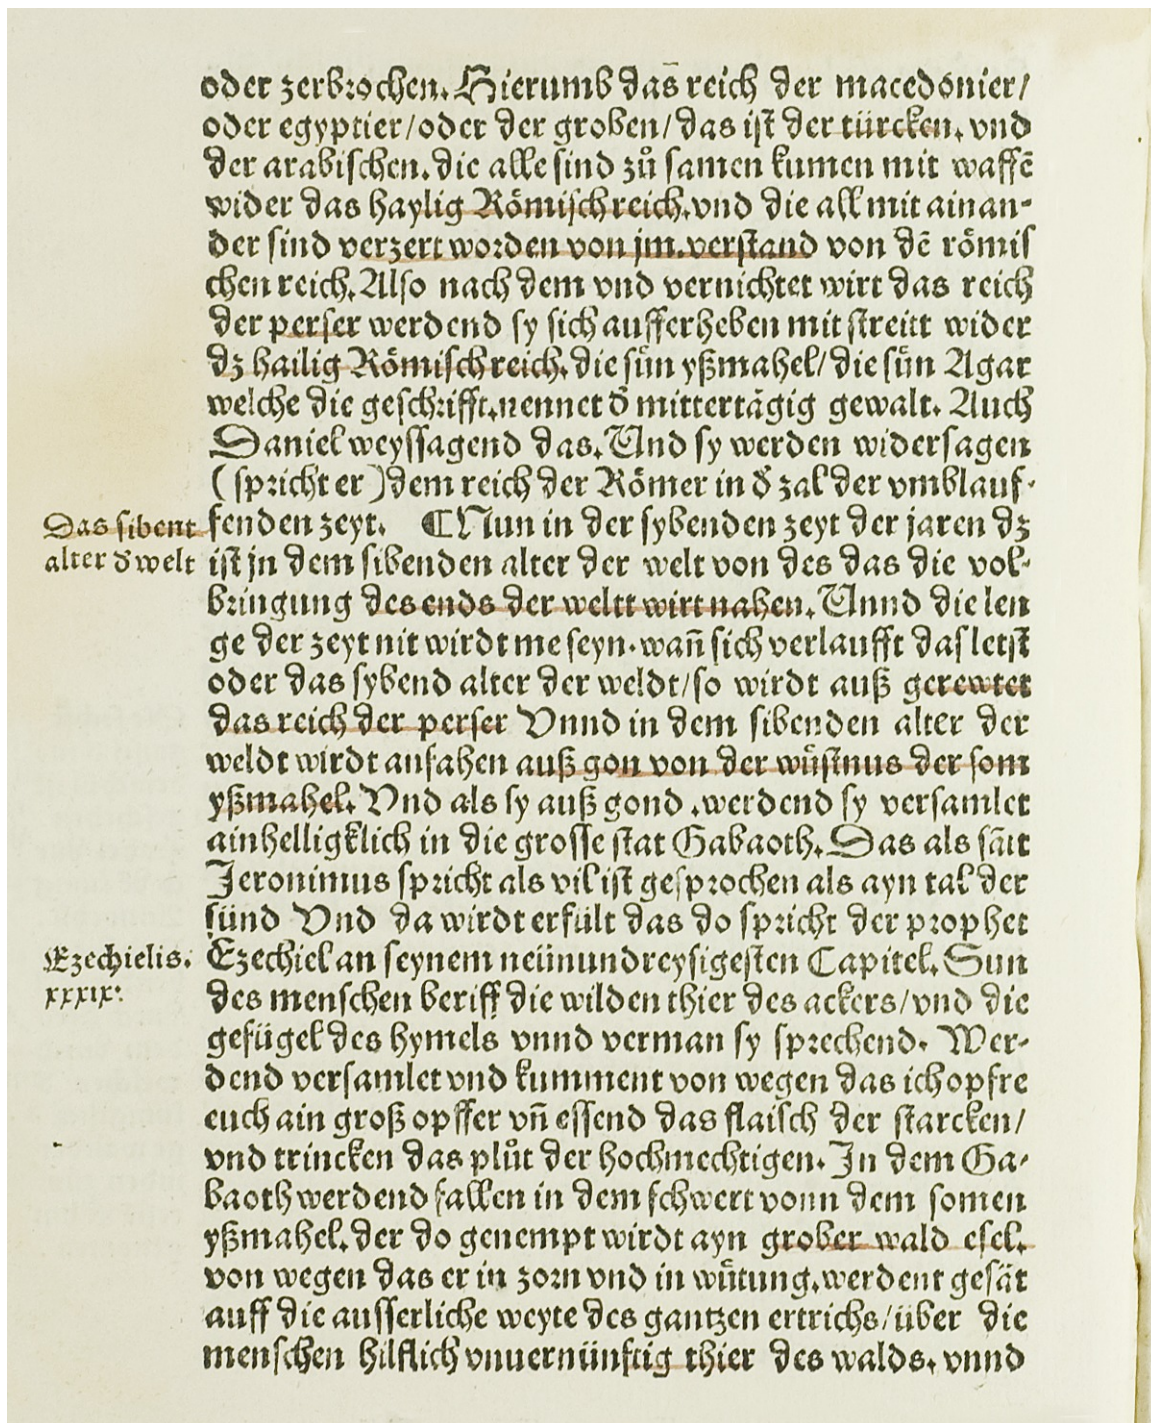 oder zerbrochen. Hierumb das̄ reich der macedonier/
oder egyptier/oder der groben/das ist der türcken. vnd
der arabischen. die alle sind zů samen kumen mit waffē
wider das haylig Römisch reich. vnd die all mit ainan-
der sind verzert worden von jm. verstand von dē römis
chen reich. Also nach dem vnd vernichtet wirt das reich
der perser werdend sy sich aufferheben mit streitt wider
dz hailig Römisch reich. die sün yßmahel/die sün Agar
welche die geschrifft. nennet d̄ mittertägig gewalt. Auch
Daniel weyssagend das. Und sy werden widersagen
(spricht er)dem reich der Römer in d̄ zal der vmblauf-
Das sibent
alter d̄ welt
fenden zeyt. ¶Nun in der sybenden zeyt der jaren dz
ist jn dem sibenden alter der welt von des das die vol-
bringung des ends der weltt wirt nahen. Unnd die len
ge der zeyt nit wirdt me seyn. wañ sich verlaufft das letst
oder das sybend alter der weldt/so wirdt auß gerewtet
das reich der perser Vnnd in dem sibenden alter der
weldt wirdt anfahen auß gon von der wüstnus der som
yßmahel. Vnd als sy auß gond .werdend sy versamlet
ainhelligklich in die grosse stat Gabaoth. Das als sāt
Jeronimus spricht als vil ist gesprochen als ayn tal der
sünd Vnd da wirdt erfült das do spricht der prophet
Ezechielis.
xxxix.
Ezechiel an seynem neünundreysigesten Capitel. Sun
des menschen beriff die wilden thier des ackers/vnd die
gefügel des hymels vnnd verman sy sprechend. Wer-
dend versamlet vnd kumment von wegen das ich opfre
euch ain groß opffer vñ essend das flaisch der starcken/
vnd trincken das plůt der hochmechtigen. In dem Ga-
baoth werdend fallen in dem schwert vonn dem somen
yßmahel. der do genempt wirdt ayn grober wald esel.
von wegen das er in zorn vnd in wütung. werdent gesät
auff die ausserliche weyte des gantzen ertrichs/über die
menschen hilflich vnuernünftig thier des walds. vnnd